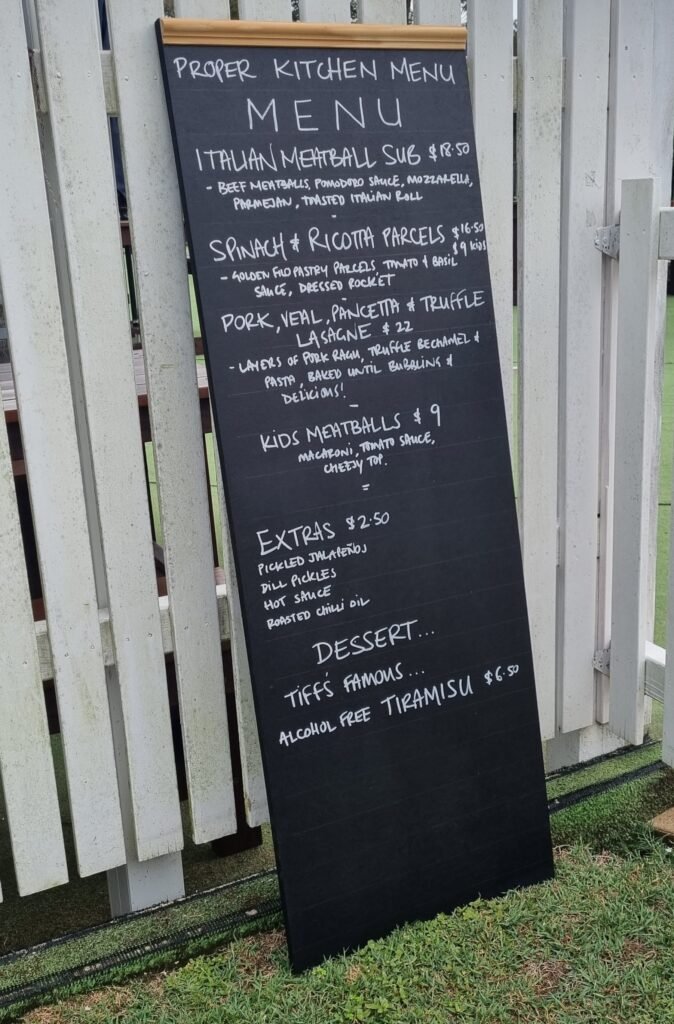 PROPER KITCHEN MENU
MENU
ITALIAN MEATBALL SUB $18.50
- BEEF MEATBALLS, POMODORO SAUCE, MOZZARELLA,
PARMEJAN, TOASTED ITALIAN ROLL
-
SPINACH & RICOTTA PARCELS $16.50
$9 KIDS
- GOLDEN FILO PASTRY PARCELS, TOMATO & BASIL
SAUCE, DRESSED ROCKET
-
PORK, VEAL, PANCETTA & TRUFFLE
LASAGNE $22
- LAYERS OF PORK RAGU, TRUFFLE BECHAMEL &
PASTA, BAKED UNTIL BUBBLING &
DELICIOUS!
-
KIDS MEATBALLS $9
MACARONI, TOMATO SAUCE,
CHEESY TOP.
=
EXTRAS $2.50
PICKLED JALAPEÑOS
DILL PICKLES
HOT SAUCE
ROASTED CHILLI OIL
DESSERT...
TIFF'S FAMOUS...
ALCOHOL FREE TIRAMISU $6.50